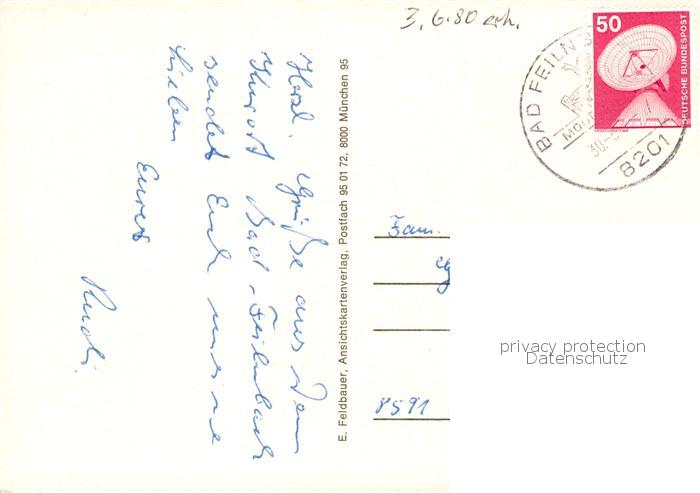 3.6.80 erh.
Herzl. Grüße aus dem
Kurort Bad-Feilnbach
sendet Euch meine
Lieben
Eurer
Rudi.
E. Feldbauer, Ansichtskartenverlag, Postfach 95 01 72, 8000 München 95
BAD FEILN
8201
50
DEUTSCHE BUNDESPOST
Fam.
8591
privacy protection
Datenschutz